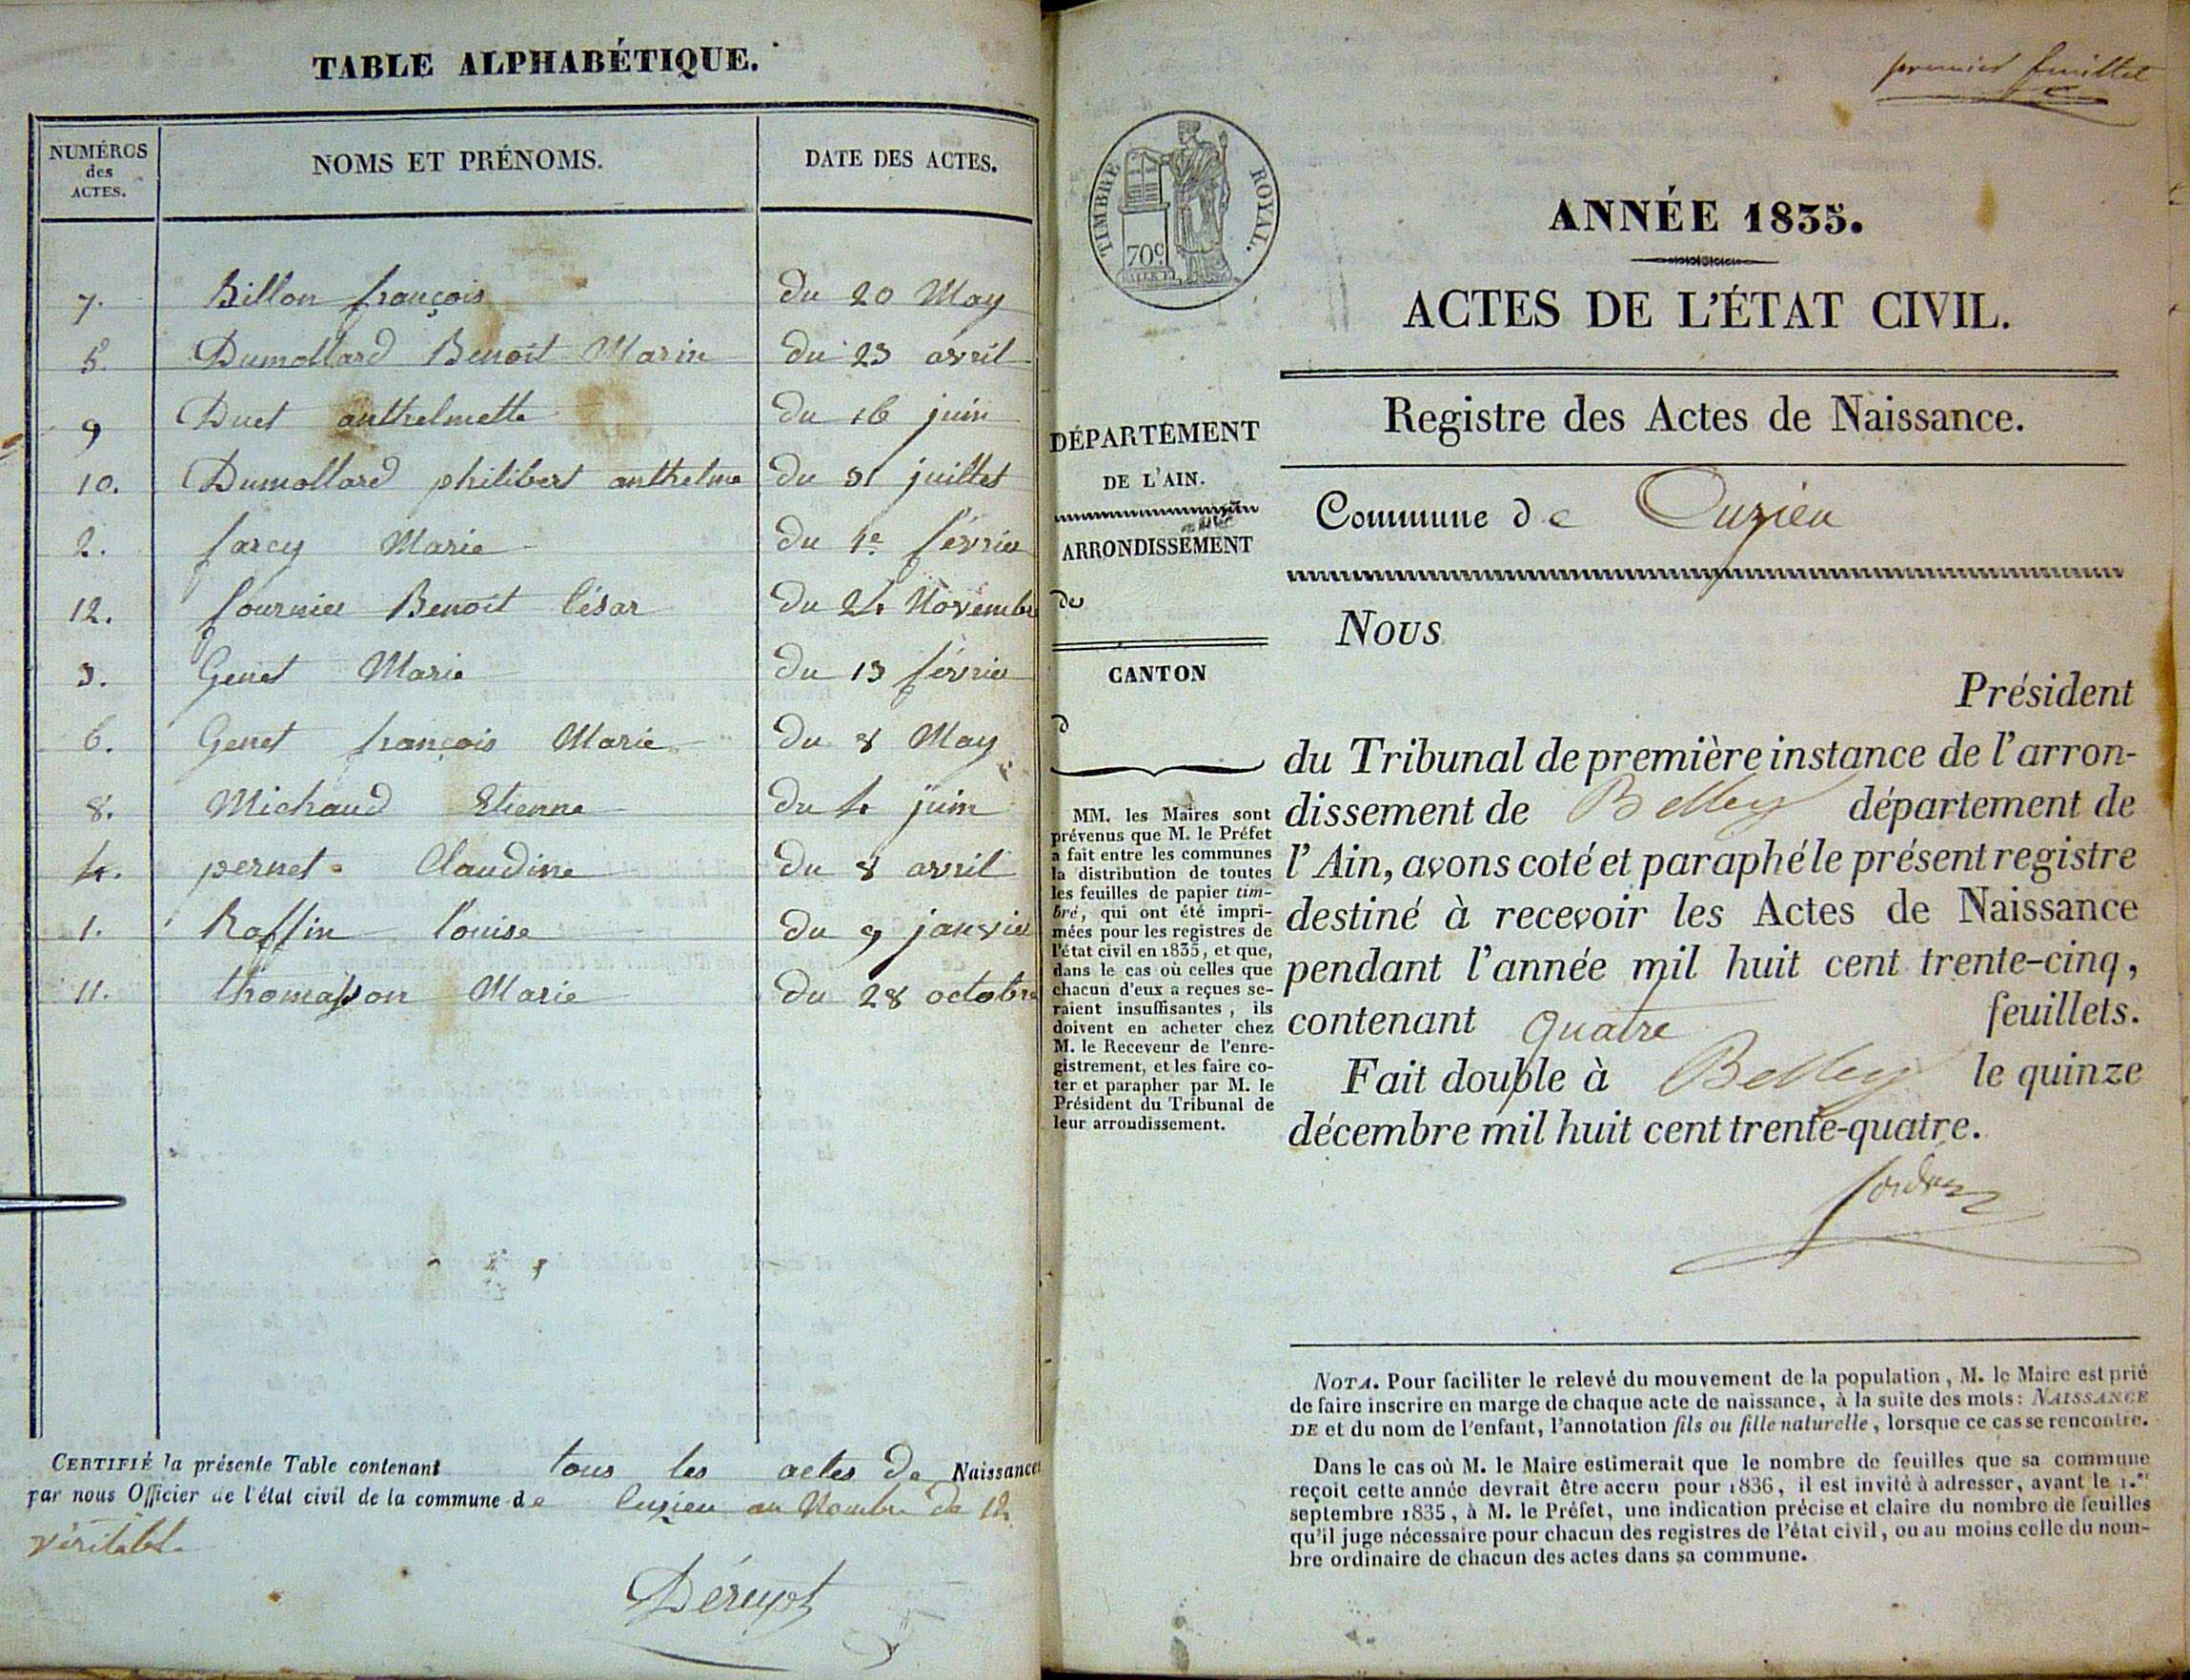 TABLE ALPHABÉTIQUE.
NUMÉROS des ACTES. NOMS ET PRÉNOMS. DATE DES ACTES.
7. Billon françois du 20 May
5. Dumollard Benoit Marin du 23 avril
9 Duet anthelmette du 16 juin
10. Dumollard philibert anthelme du 31 juillet
2. farcy Marie du 1e février
12. fournier Benoit César du 24 Novembre
3. Genet Marie du 13 février
6. Genet françois Marie du 8 May
8. Michaud Etienne du 4 juin
4. pernet Claudine du 8 avril
1. Roffin Louise du 9 janvier
11. thomasson Marie du 28 octobre
CERTIFIÉ la présente Table contenant tous les actes de Naissances
par nous Officier de l'état civil de la commune de Cuzieu au Nombre de 12
véritable
premier feuillet
TIMBRE ROYAL.
70c
ANNÉE 1835.
ACTES DE L'ÉTAT CIVIL.
Registre des Actes de Naissance.
Commune de Cuzieu
DÉPARTEMENT
DE L'AIN.
ARRONDISSEMENT
de
CANTON
d
MM. les Maires sont
prévenus que M. le Préfet
a fait entre les communes
la distribution de toutes
les feuilles de papier tim-
bré, qui ont été impri-
mées pour les registres de
l'état civil en 1835, et que,
dans le cas où celles que
chacun d'eux a reçues se-
raient insuffisantes, ils
doivent en acheter chez
M. le Receveur de l'enre-
gistrement, et les faire co-
ter et parapher par M. le
Président du Tribunal de
leur arrondissement.
Nous
Président
du Tribunal de première instance de l'arron-
dissement de Belley département de
l'Ain, avons coté et paraphé le présent registre
destiné à recevoir les Actes de Naissance
pendant l'année mil huit cent trente-cinq,
contenant quatre feuillets.
Fait double à Belley le quinze
décembre mil huit cent trente-quatre.
NOTA. Pour faciliter le relevé du mouvement de la population, M. le Maire est prié
de faire inscrire en marge de chaque acte de naissance, à la suite des mots: NAISSANCE
DE et du nom de l'enfant, l'annotation fils ou fille naturelle, lorsque ce cas se rencontre.
Dans le cas où M. le Maire estimerait que le nombre de feuilles que sa commune
reçoit cette année devrait être accru pour 1836, il est invité à adresser, avant le 1.er
septembre 1835, à M. le Préfet, une indication précise et claire du nombre de feuilles
qu'il juge nécessaire pour chacun des registres de l'état civil, ou au moins celle du nom-
bre ordinaire de chacun des actes dans sa commune.